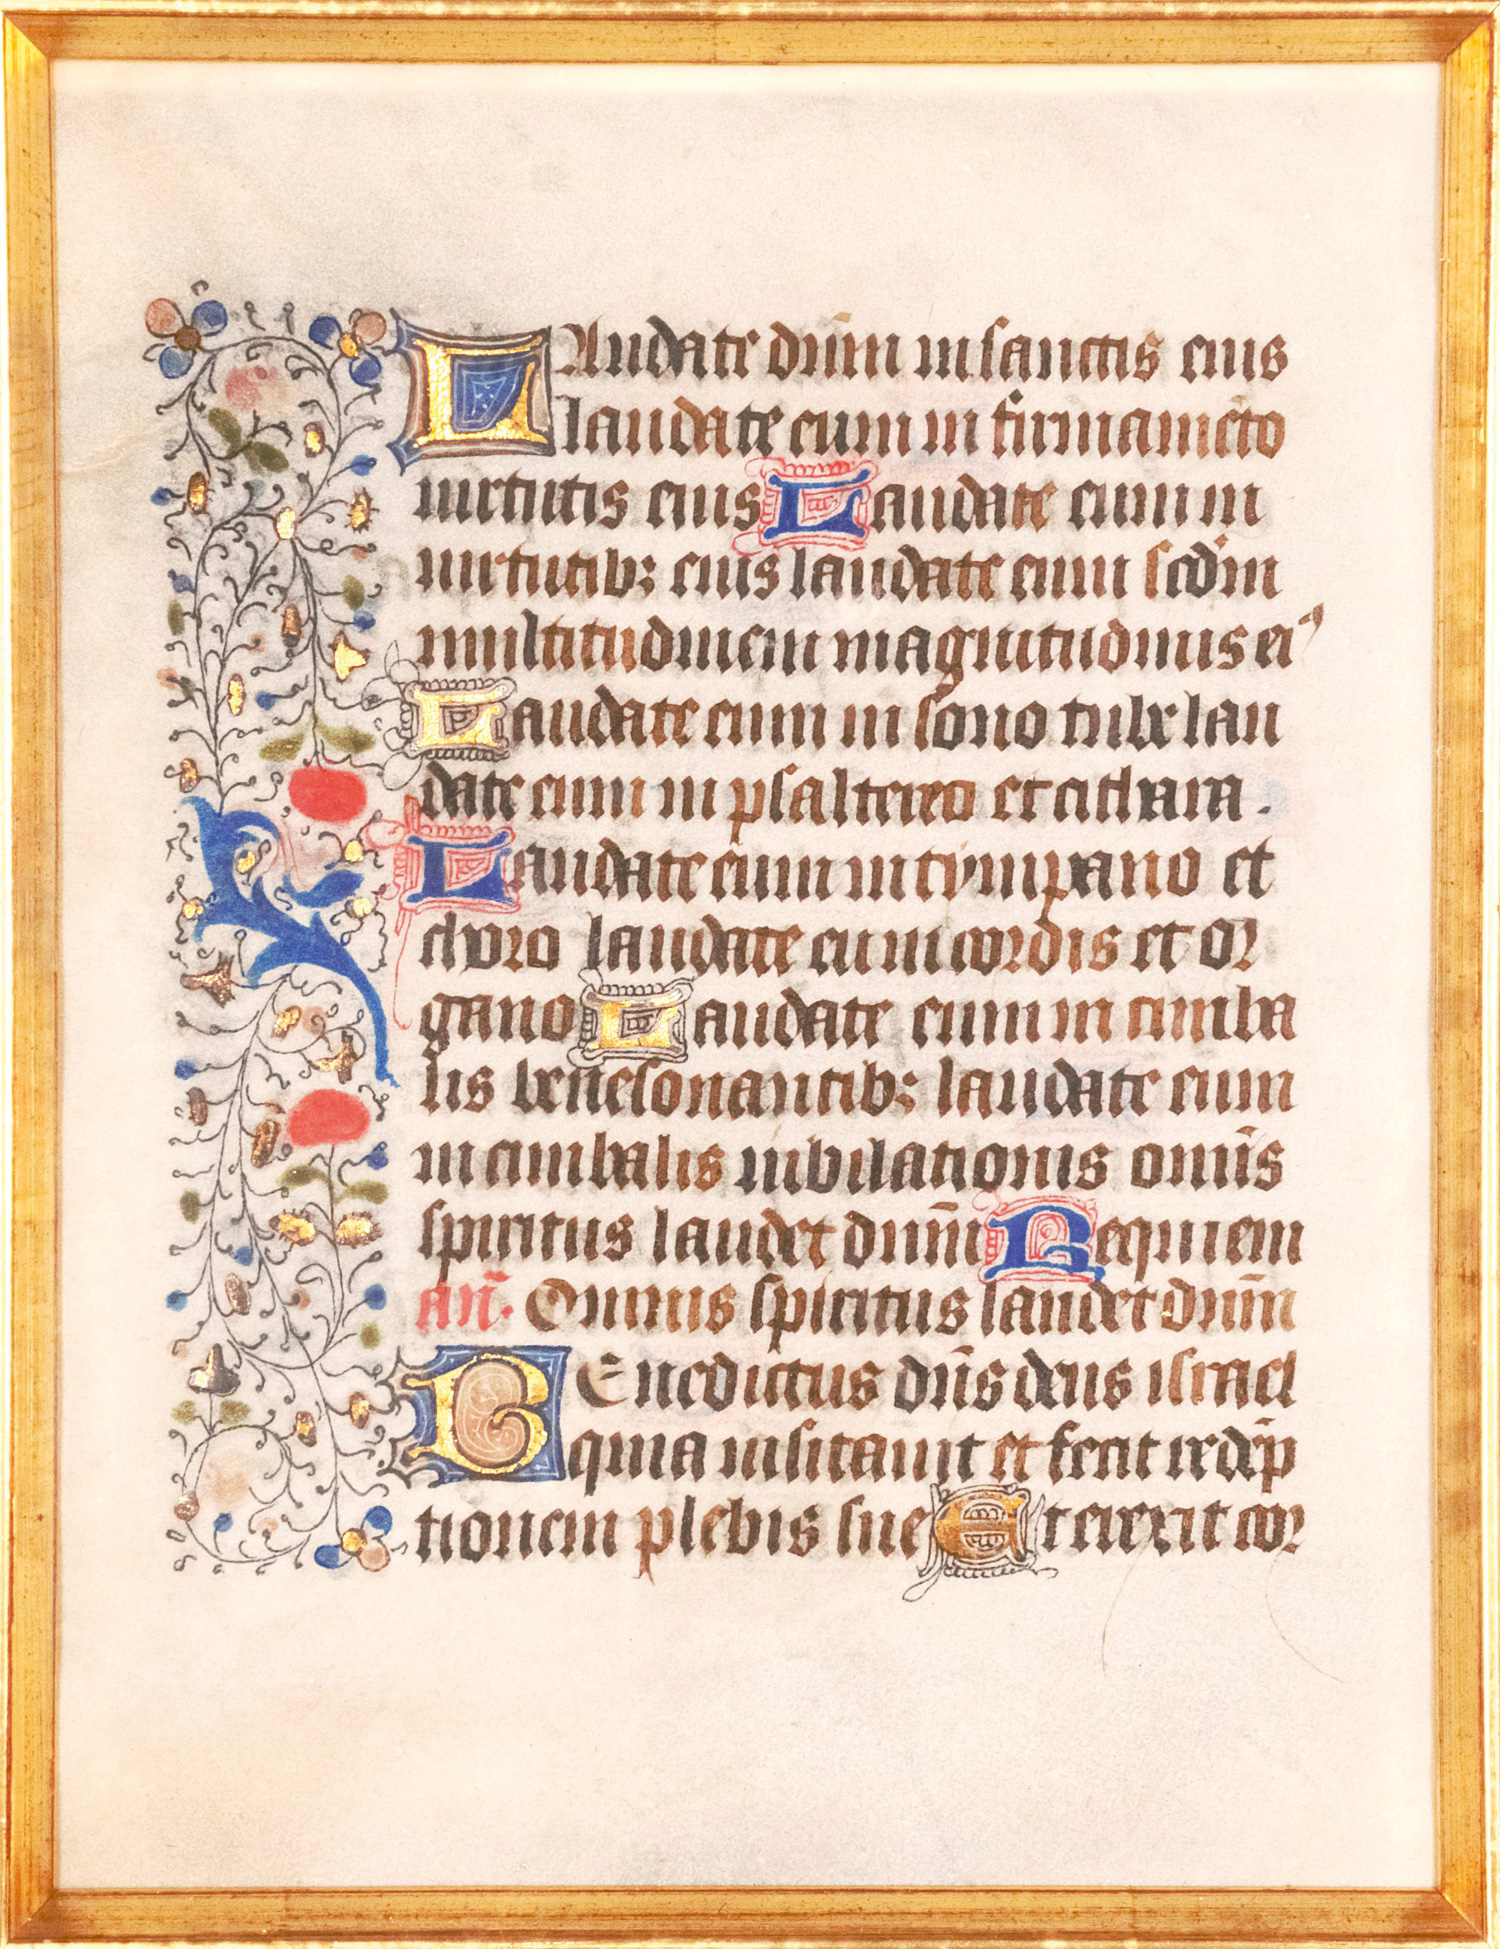 Laudate dn̄m in sanctis eius
laudate eum in firmamēto
uirtutis eius Laudate eum in
uirtutib; eius laudate eum scd̄m
multitudinem magnitudinis ei⁹
Laudate eum in sono tube lau
date eum in psalterio et cithara .
Laudate eum in tympano et
choro laudate eum cordis et or
gano Laudate eum in cimba
lis benesonantib; laudate eum
in cimbalis iubilationis omīs
spiritus laudet dnm̄ Requiem
an̄. Omnis spiritus laudet dnm̄
BEnedictus dn̄s deus israel
quia uisitauit et fecit redēp
tionem plebis sue Et erexit cor